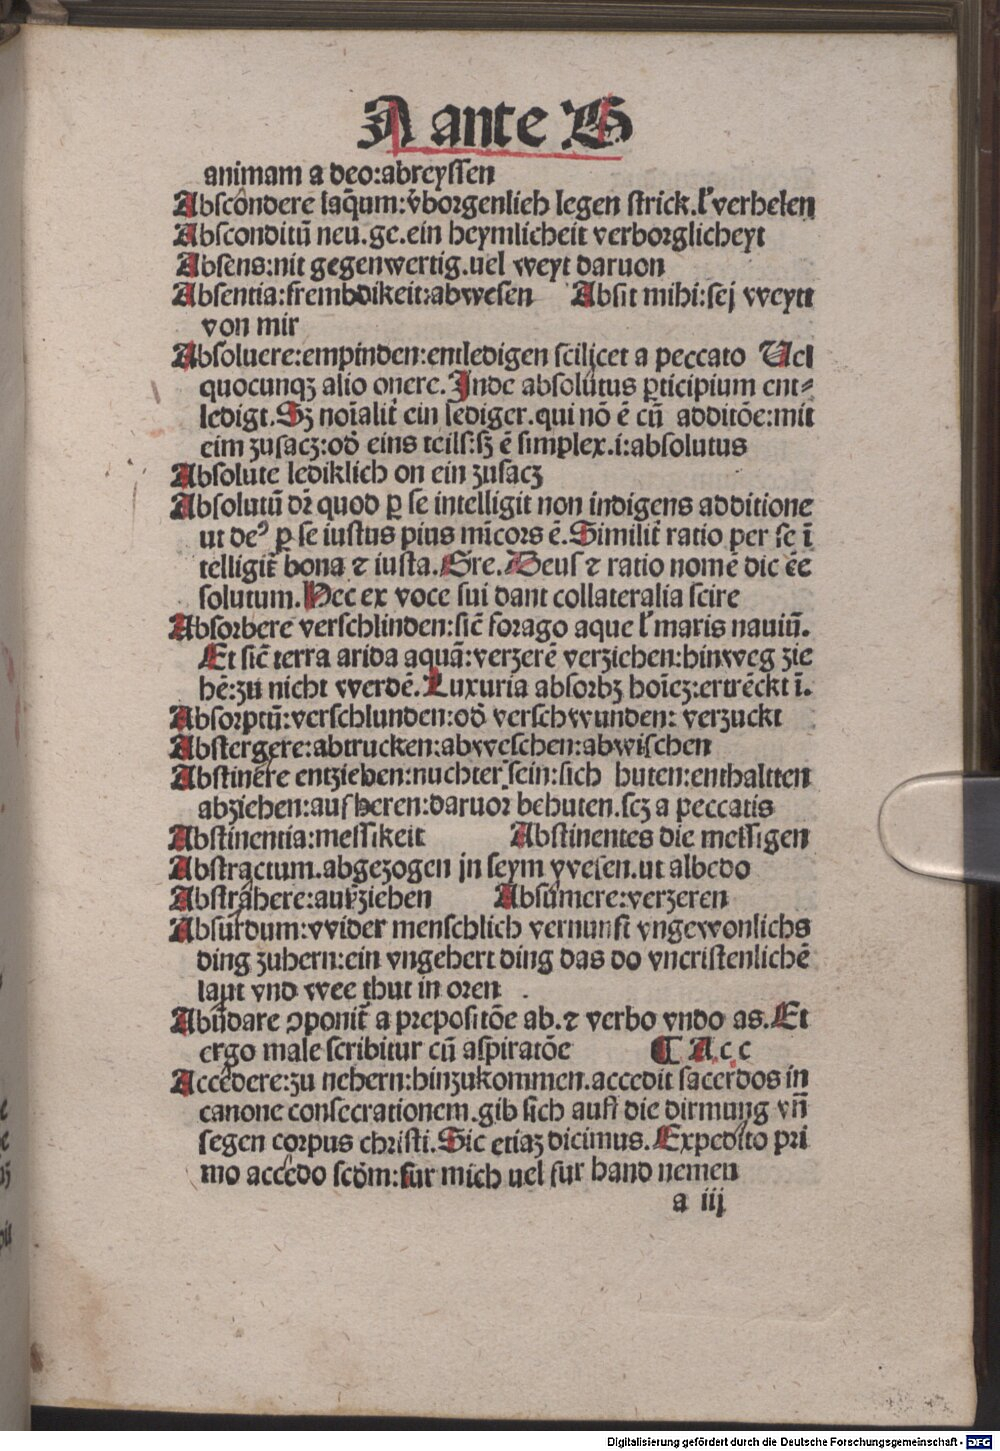 A ante B
animam a deo:abreyssen
Abscōndere laq̄um:v̄borgenlich legen strick.l' verhelen
Absconditū neu.ge.ein heymlicheit verborglicheyt
Absens:nit gegenwertig.uel weyt daruon
Absentia:frembdikeit:abwesen Absit mihi:sej weytt
von mir
Absoluere:empinden:entledigen scilicet a peccato Uel
quocunqꝫ alio onere.Inde absolutus ꝑticipium ent⸗
ledigt.Sꝫ noīalit̄ ein lediger.qui nō ē cū additōe:mit
eim zusacz:od̄ eins teils:sꝫ ē simplex.i:absolutus
Absolute lediklich on ein zusacz
Absolutū dr̄ quod ꝑ se intelligit non indigens additione
ut deꝰ ꝑ se iustus pius mīcors ē.Similit̄ ratio per se ī
telligit̄ bona ⁊ iusta.Gre.Deus ⁊ ratio nomē dic ēe
solutum.Hec ex voce sui dant collateralia scire
Absorbere verschlinden:sic̄ forago aque l' maris nauiū.
Et sic̄ terra arida aquā:verzerē verziehen:hinweg zie
hē:zu nicht werdē.Luxuria absorbꝫ hoīeꝫ:ertrēckt ī.
Absorptū:verschlunden:od̄ verschwunden: verzuckt
Abstergere:abtrucken:abweschen:abwischen
Abstinere entziehen:nuchter sein:sich huten:enthaltten
abziehen:aufheren:daruor behuten.scꝫ a peccatis
Abstinentia:messikeit Abstinentes die messigen
Abstractum.abgezogen jn seym wesen.ut albedo
Abstrahere:aufziehen Absumere:verzeren
Absurdum:wider menschlich vernunft vngewonlichs
ding zuhern:ein vngehert ding das do vncristenlichē
laut vnd wee thut in oren .
Abūdare ɔponit̄ a prepositōe ab.⁊ verbo vndo as.Et
ergo male scribitur cū aspiratōe ¶ A.c c
Accedere:zu nehern:hinzukommen.accedit sacerdos in
canone consecrationem.gib sich auff die dirmung vn̄
segen corpus christi.Sic etiaꝫ dicimus.Expedito pri
mo accedo scōm:fur mich uel fur hand nemen
a iij
Digitalisierung gefördert durch die Deutsche Forschungsgemeinschaft - DFG